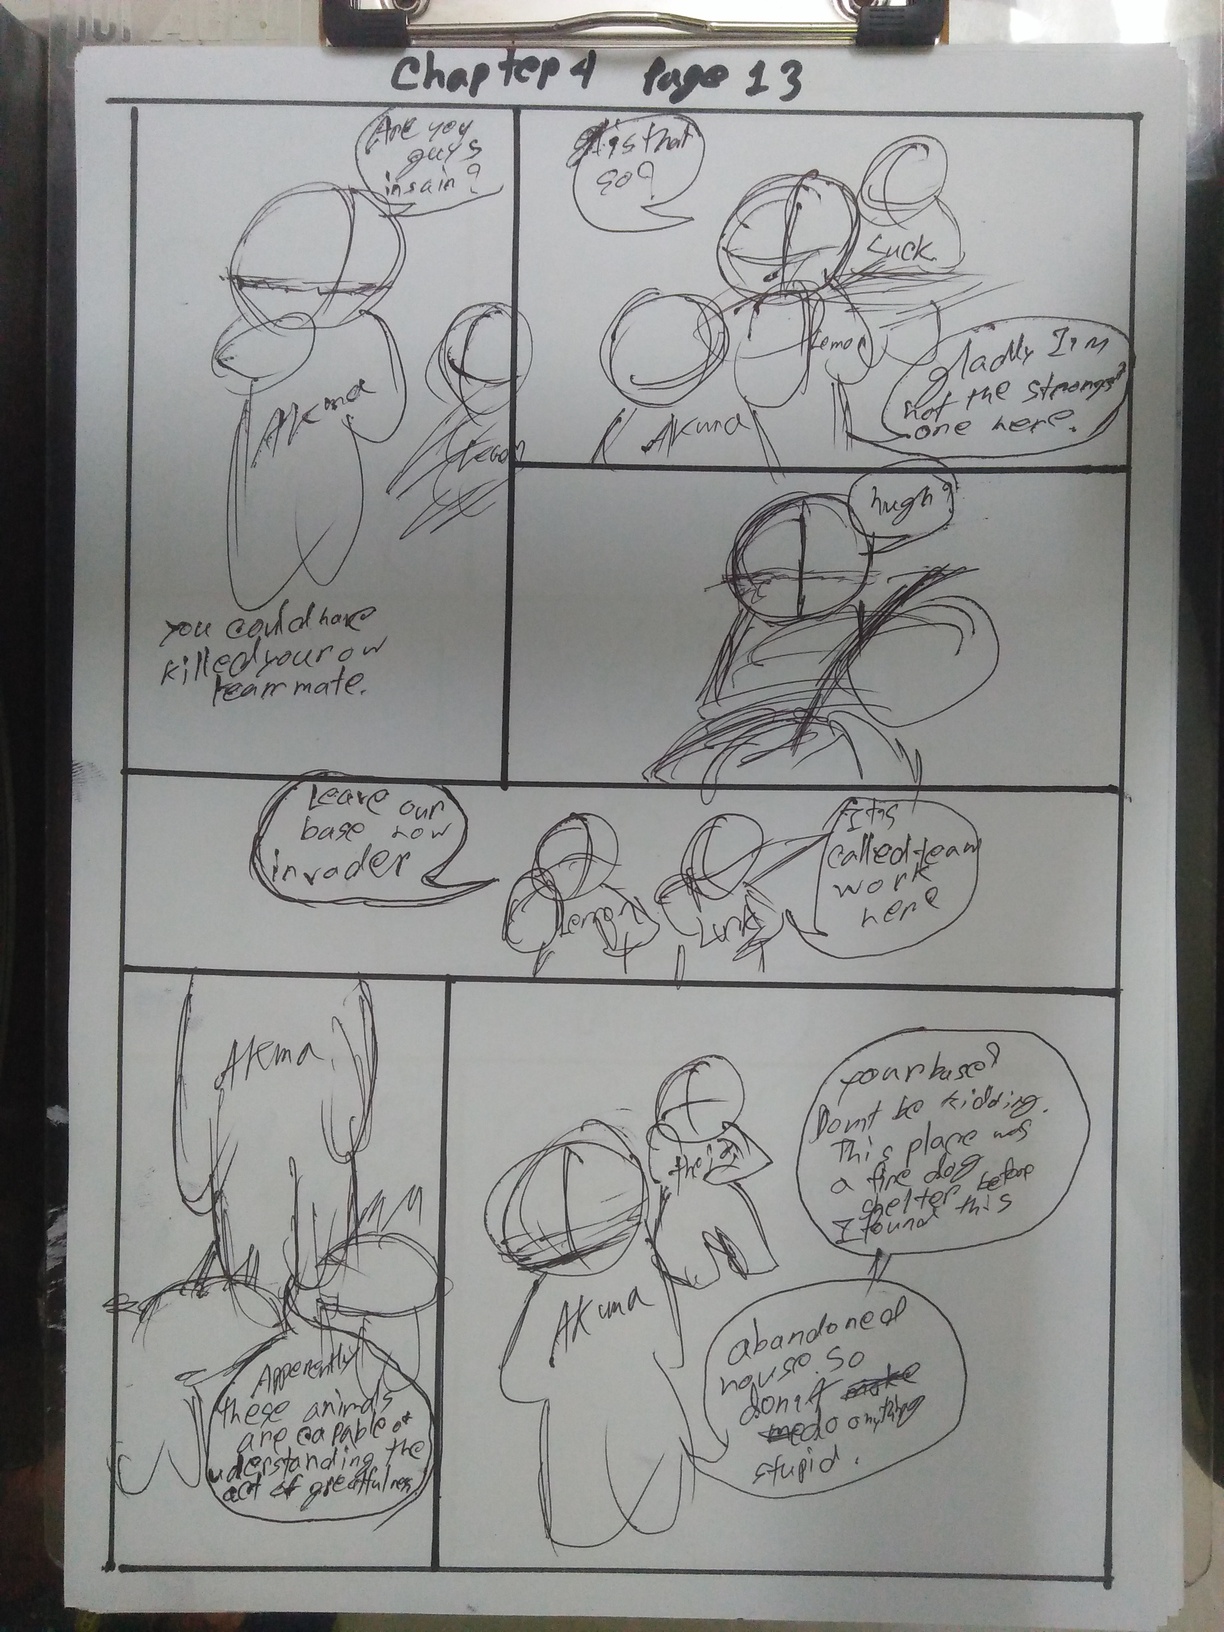 Chapter 4 Page 13
Are you
guys
insain?
Akma
you could have
killed your ow
teammate.
is that
so?
Suck
Lemon
Akuma
gladly I'm
not the strongest
one here.
hugh?
Leave our
base now
invader
Lemon
Lunk
It's
called team
work
here
Akma
Apperently
these animals
are capable of
understanding the
act of greatfulness
Akuma
your base?
Don't be kidding.
This place was
a fine dog
shelter before
I found this
abandoned
house. So
don't
do anything
stupid.